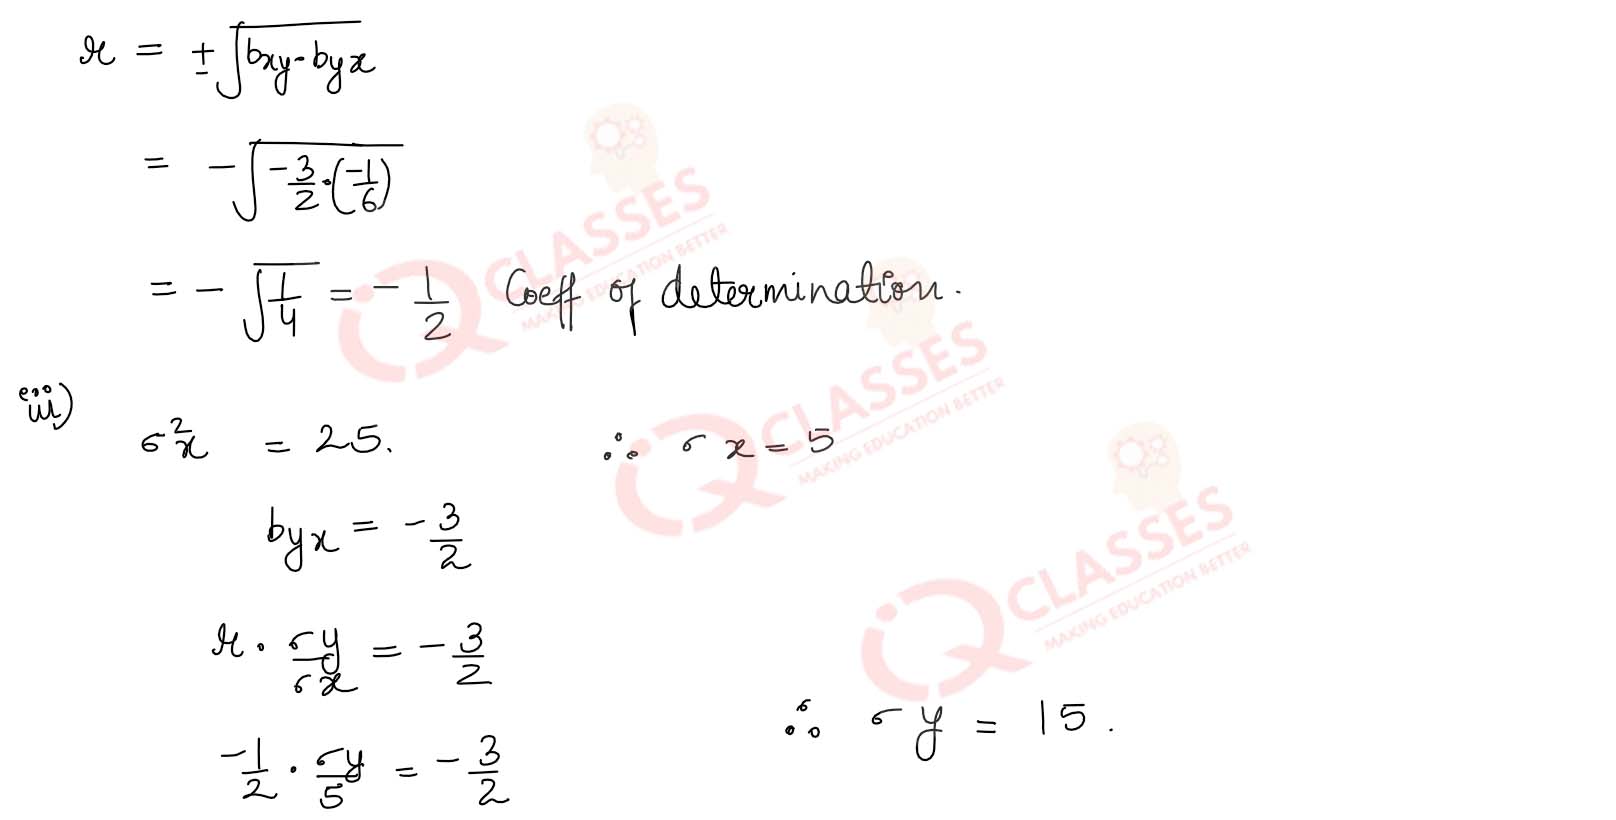 r = ± √bxy · byx
= - √-3/2 · (-1/6)
= - √1/4 = - 1/2 Coeff of determination.
iii)
σ²x = 25. ∴ σx = 5
byx = - 3/2
r · σy/σx = - 3/2
-1/2 · σy/5 = - 3/2 ∴ σy = 15.
iQ CLASSES
MAKING EDUCATION BETTER
iQ CLASSES
MAKING EDUCATION BETTER
iQ CLASSES
MAKING EDUCATION BETTER